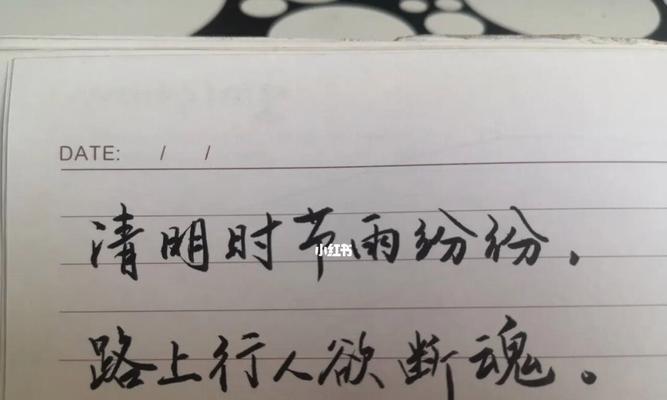 DATE: / /
清明时节雨纷纷,
小红书
路上行人欲断魂。